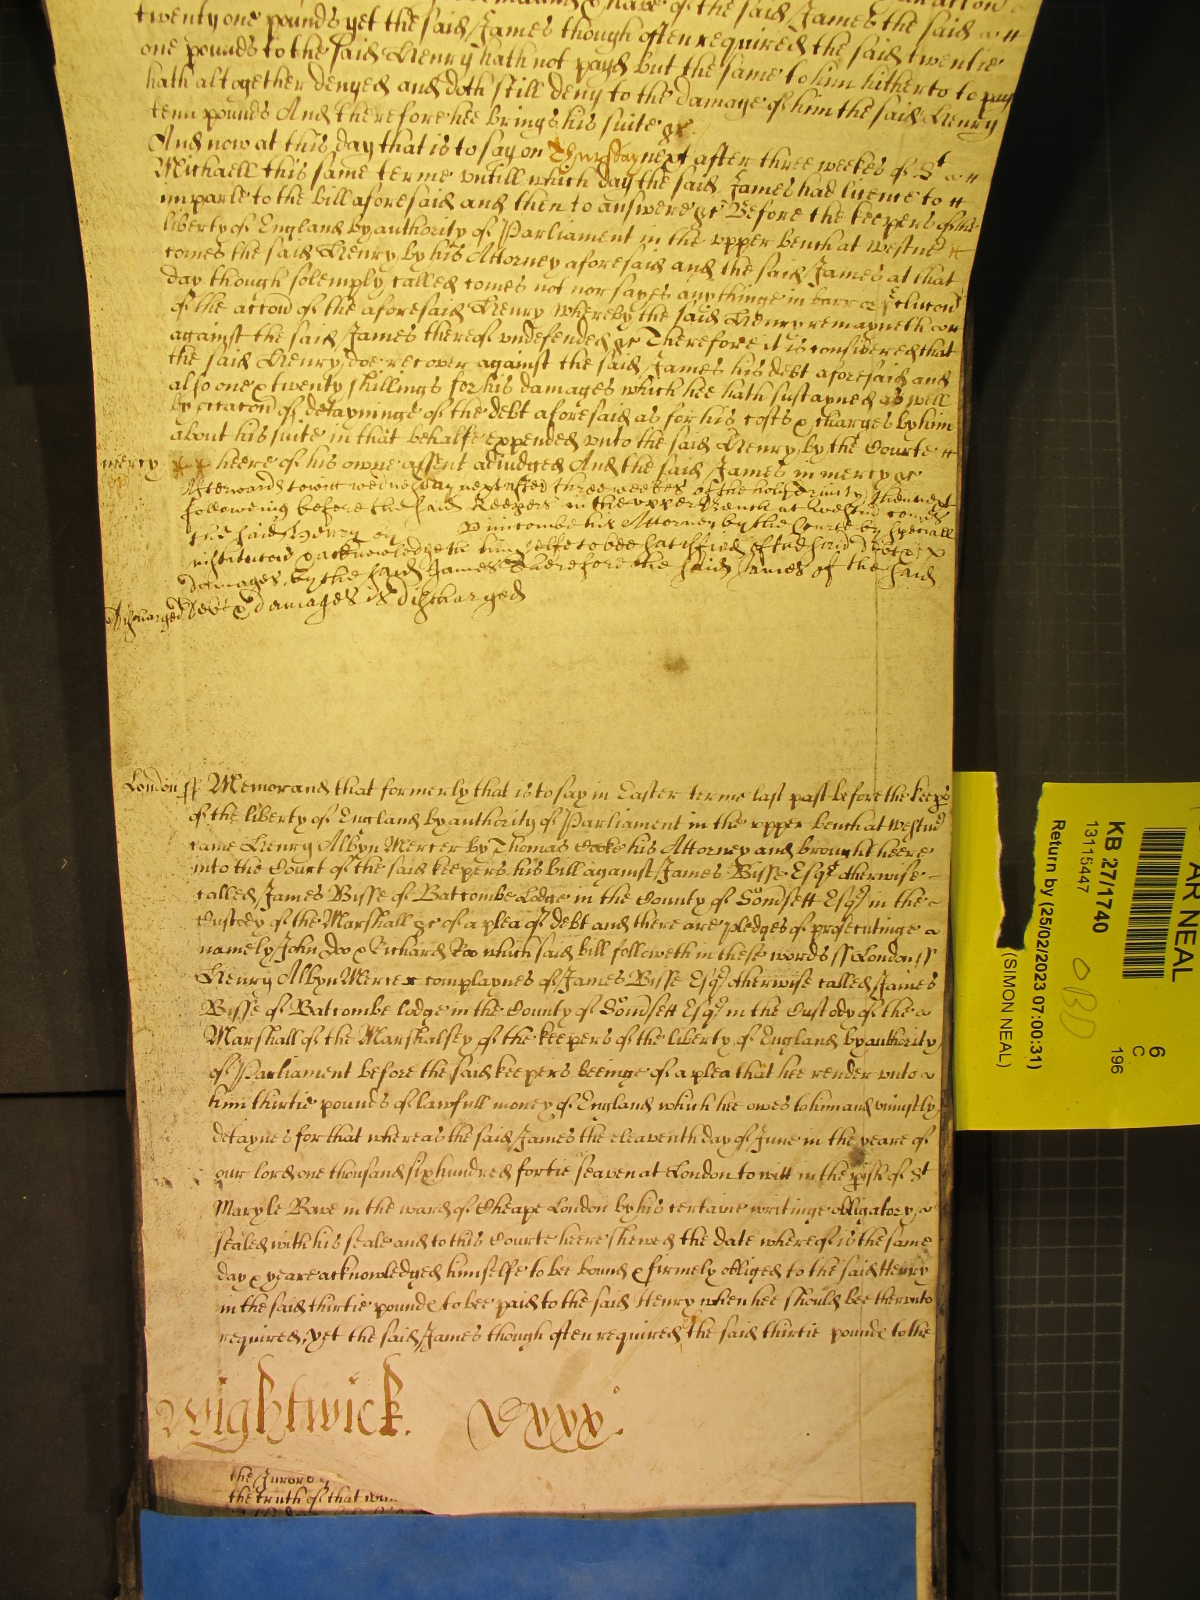 twenty one pounds yet the said James though often required the said
one pounds to the said Henry hath not payd but the same to him hitherto to pay
hath altogether denyed and doth still deny to the damage of him the said Henry
tenn pounds And therefore hee brings his suite &c.
And now at this day that is to say on Thursday next after three weekes of St
Michaell this same terme untill which day the said James had licence to
imparle to the bill aforesaid and then to answere &c Before the keepers of the
liberty of England by authority of Parliament in the upper bench at Westm
comes the said Henry by his Attorney aforesaid and the said James at that
day though solemply called comes not nor sayes any thinge in barr or
of the accon of the aforesaid Henry whereby the said Henry remayneth
against the said James thereof undefended &c Therefore it is considered that
the said Henry doe recover against the said James his debt aforesaid and
also one & twenty shillings for his damages which hee hath sustayned as well
by reason of detayninge of the debt aforesaid as for his costs & charges by him
about his suite in that behalfe expended unto the said Henry by the Courte
mercy heere of his owne assent adiudged And the said James in mercy &c
Afterwards to witt wednesday next after three weekes of the holy Trinity then next
following before the said Keepers in the upper Bench at Westm comes
the said Henry by his Attorney by the Courte by speciall
& acknowledgeth himselfe to bee satisfied of the said debt &
damages by the said James Therefore the said James of the said
discharged debt & damages is discharged
London ss Memorand that formerly that is to say in Easter terme last past before the keeps
of the liberty of England by authority of Parliament in the upper bench at Westm
came Henry Albyn Mercer by Thomas Cooke his Attorney and brought heere
into the Court of the said keepers his bill against James Bisse Esqr otherwise
called James Bisse of Batcombe Lodge in the County of Somsett Esqr in the
Custody of the Marshall &c of a plea of debt and there are pledges of prosecutinge
namely John Doo & Richard Roo which said bill followeth in these words ss London ss
Henry Albyn Mercer complaynes of James Bisse Esqr otherwise called James
Bisse of Batcombe lodge in the County of Somsett Esqr in the Custody of the
Marshall of the Marshalsey of the keepers of the liberty of England by authority
of Parliament before the said keepers beeinge of a plea that hee render unto
him thirtie pounds of lawfull money of England which hee owes to him and uniustly
detaynes for that whereas the said James the eleaventh day of June in the yeare of
our lord one thousand six hundred fortie seaven at London to witt in the pish of St
Mary le Bowe in the ward of Cheape London by his certaine writinge obligatory
sealed with his seale and to this Courte heere shewed the date whereof is the same
day & yeare acknowledged himselfe to bee bound & firmely obliged to the said Henry
in the said thirtie pounds to bee paid to the said Henry when hee should bee therunto
required, yet the said James though often required the said thirtie pounds to the
Wightwick.
the Jurors
the truth of that
AR NEAL
KB 27/1740
13115447
Return by (25/02/2023 07:00:31)
(SIMON NEAL)
6
C
196